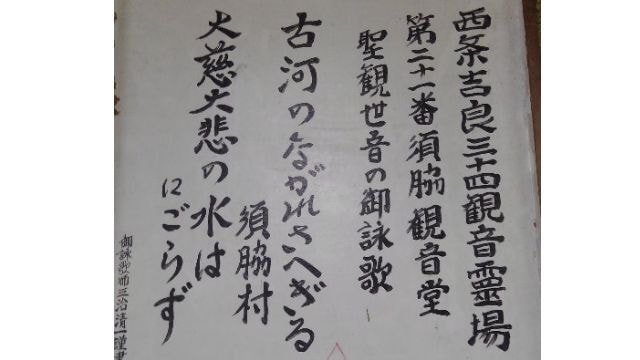 西条吉良三十四観音霊場
第二十一番須脇観音堂
聖観世音の御詠歌
古河のながれさへぎる
須脇村
大慈大悲の水は
にごらず
御詠歌師三治清一謹書